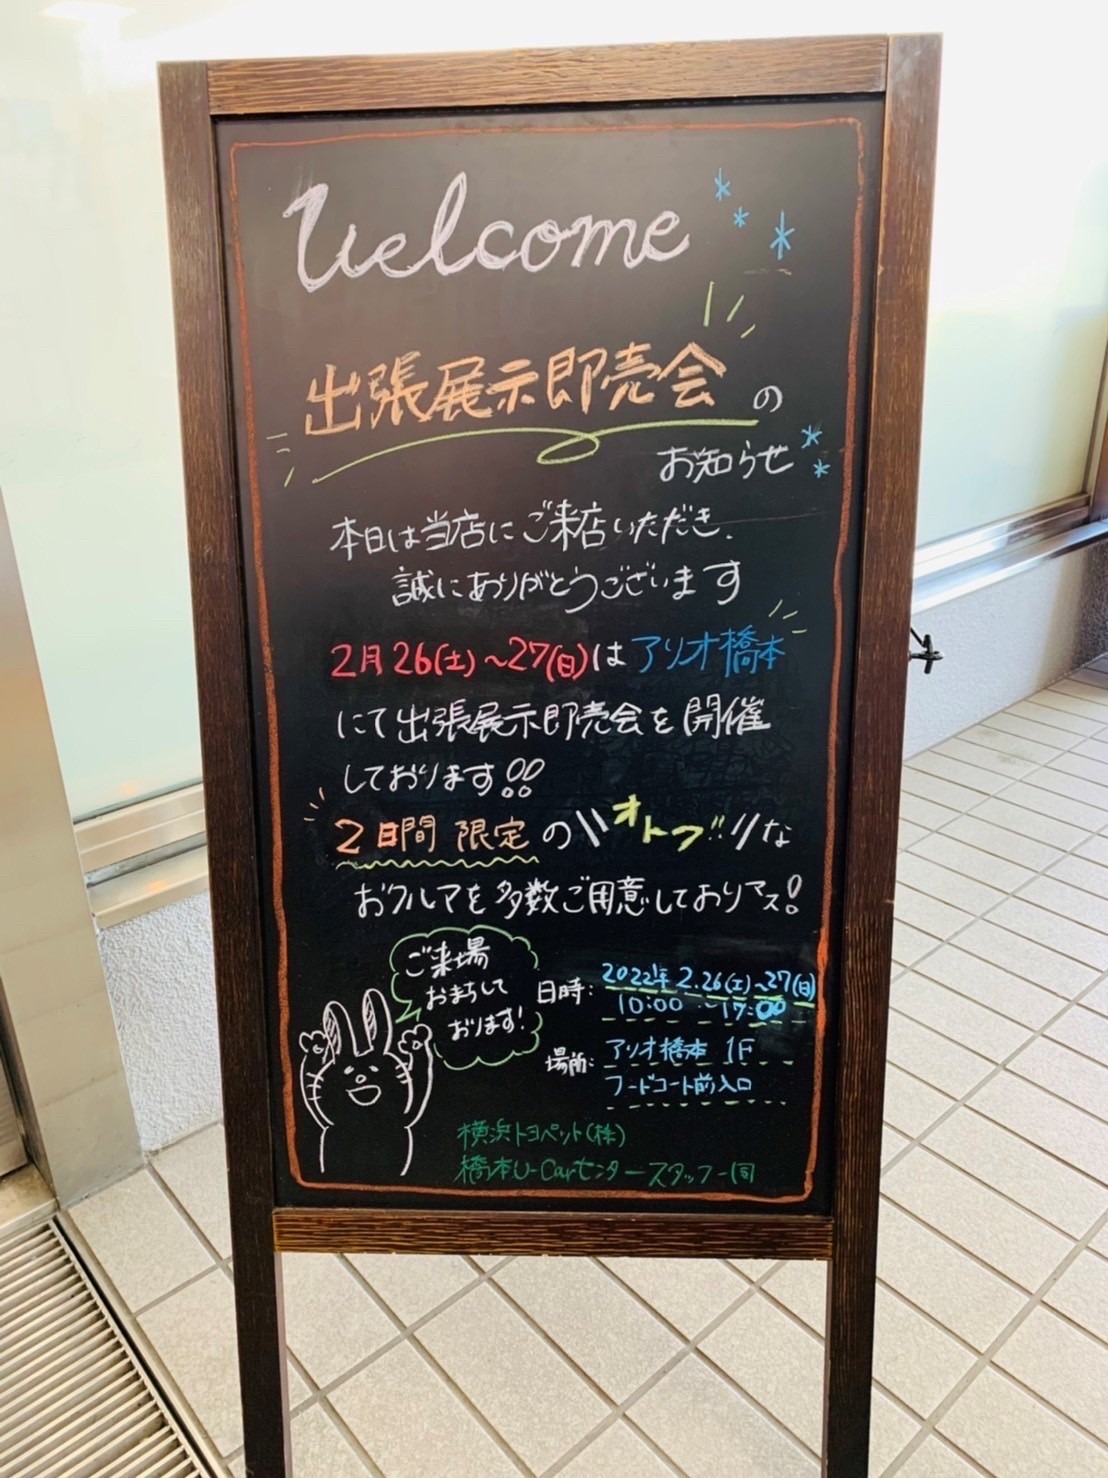 Welcome
出張展示即売会の
お知らせ
本日は当店にご来店いただき、
誠にありがとうございます
2月26(土)~27(日)はアリオ橋本
にて出張展示即売会を開催
しております!!
2日間 限定の\\オトク!!//な
おクルマを多数ご用意しておりマス!
ご来場
おまちして
おります!
日時: 2022年 2.26(土)~27(日)
10:00 ~17:00
場所: アリオ橋本 1F
フードコート前入口
横浜トヨペット(株)
橋本U-Carセンタースタッフ一同